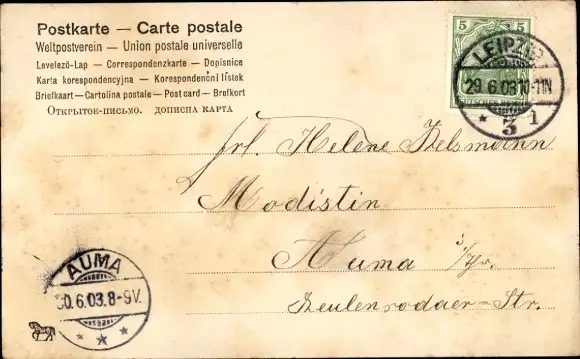 Postkarte — Carte postale
Weltpostverein — Union postale universelle
Levelező-Lap — Correspondenzkarte — Dopisnice
Karta korespondencyjna — Korespondenční lístek
Briefkaart — Cartolina postale — Post card — Brefkort
Открытое-письмо. дописна карта
5 5
LEIPZIG
29.6.03 10-11N
* 3 1
Frl. Helene
Modistin
Auma i/Th.
Zeulenrodaer-Str.
AUMA
30.6.03.8-9V.
* * *